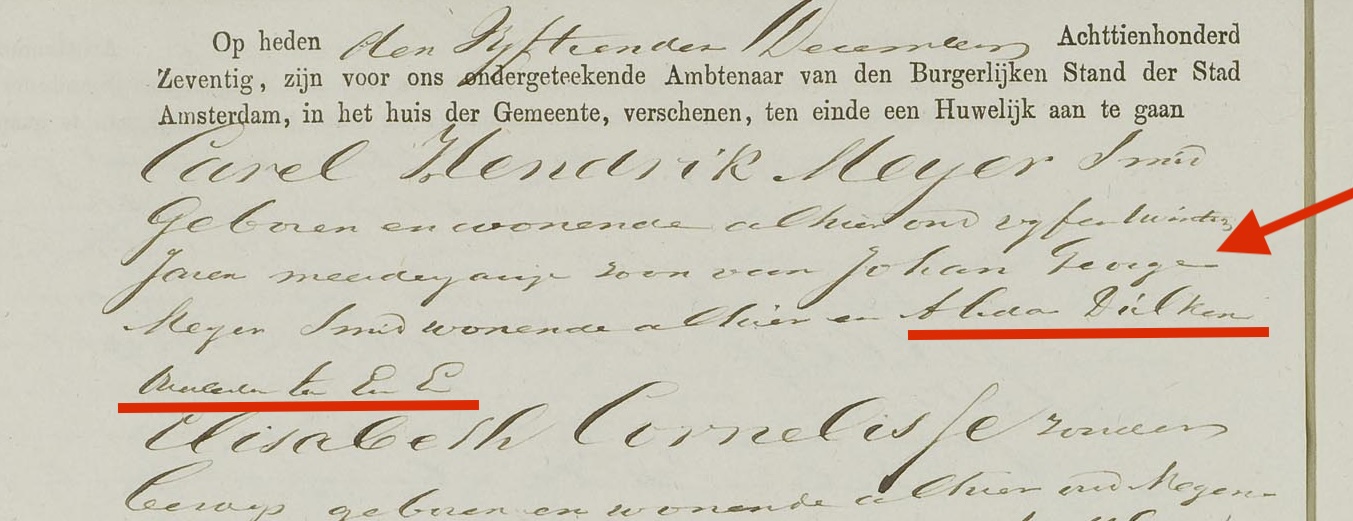 Op heden den Vyftienden December Achttienhonderd
Zeventig, zijn voor ons ondergeteekende Ambtenaar van den Burgerlijken Stand der Stad
Amsterdam, in het huis der Gemeente, verschenen, ten einde een Huwelijk aan te gaan
Carel Hendrik Meyer Smid
geboren en wonende alhier oud vyfentwintig
Jaren meerderjarige zoon van Johan George
Meyer Smid wonende alhier en Alida Dülken
overleden en
Elisabeth Cornelisse zonder
beroep geboren en wonende alhier oud Negen